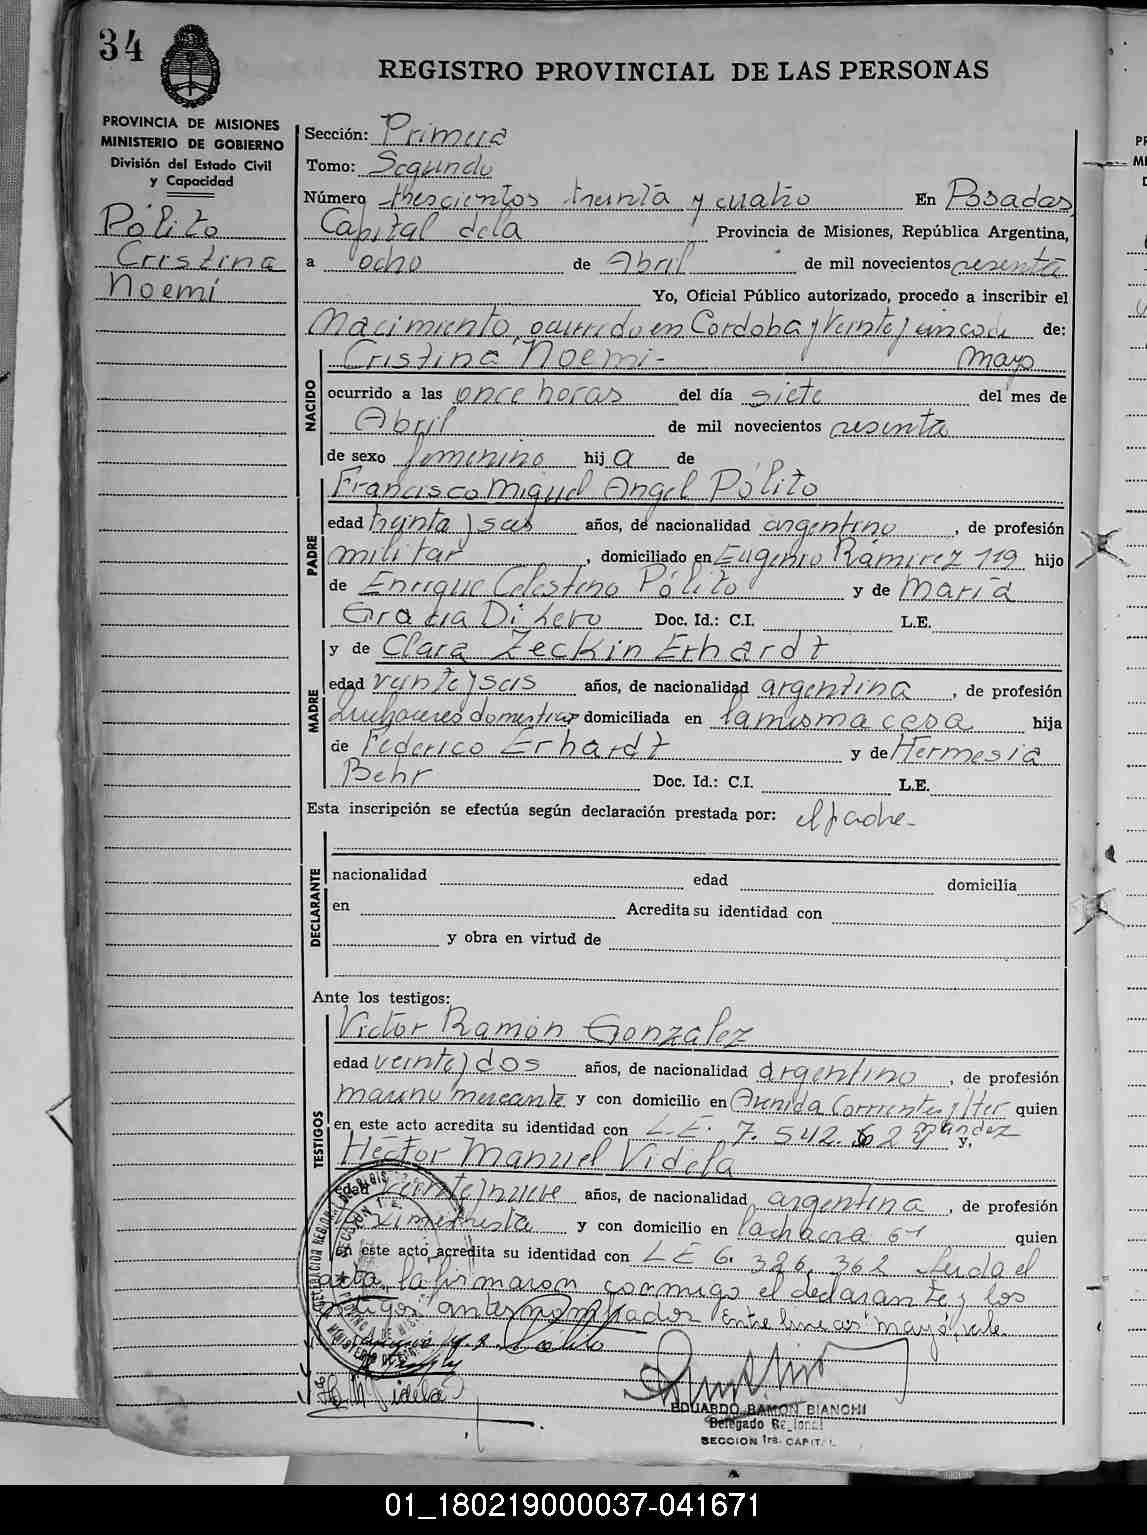 34
REGISTRO PROVINCIAL DE LAS PERSONAS
PROVINCIA DE MISIONES
MINISTERIO DE GOBIERNO
División del Estado Civil
y Capacidad
Pólito
Cristina
Noemí
Sección: Primera
Tomo: Segundo
Número trescientos treinta y cuatro En Posadas,
Capital de la Provincia de Misiones, República Argentina,
a ocho de Abril de mil novecientos sesenta
Yo, Oficial Público autorizado, procedo a inscribir el
Nacimiento, ocurrido en Córdoba y Veinte y cinco de de:
Cristina Noemi- mayo
NACIDO
ocurrido a las once horas del día siete del mes de
Abril de mil novecientos sesenta
de sexo femenino hij a de
Francisco Miguel Angel Pólito
PADRE
edad treinta y seis años, de nacionalidad argentino, de profesión
militar, domiciliado en Eugenio Ramirez 119 hijo
de Enrique Celestino Pólito y de María
Gracia Di Lero Doc. Id.: C.I. L.E.
y de Clara Zeckin Erhardt
MADRE
edad veinte y seis años, de nacionalidad argentina, de profesión
quehaceres domesticos domiciliada en la misma casa hija
de Federico Erhardt y de Hermesia
Behr Doc. Id.: C.I. L.E.
Esta inscripción se efectúa según declaración prestada por: el padre-
DECLARANTE
nacionalidad edad domicilia
en Acredita su identidad con
y obra en virtud de
Ante los testigos:
Victor Ramón González
TESTIGOS
edad veinte y dos años, de nacionalidad argentino, de profesión
marino mercante y con domicilio en Avenida Corrientes y Her quien
nandez
en este acto acredita su identidad con L.E. 7.542.629 y,
Héctor Manuel Videla
edad veinte y nueve años, de nacionalidad argentina, de profesión
y con domicilio en la chacra 61 quien
en este acto acredita su identidad con L E 6. 326. 362 Leida el
acta, la firmaron conmigo el declarante y los
testigos antes nombrados Entre lineas "mayo", vale.
H. M. Videla
EDUARDO RAMON BIANCHI
Delegado Regional
SECCION 1ra. CAPITAL
01_180219000037-041671